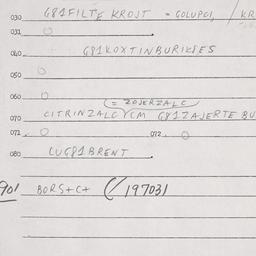 030 G81FILTE KROJT = GOLUPCI, / KR
031 O
040 G81KOXTINBURIKSES
050 O
060 O
(= ZOJERZALC
070 CITRINZALC YCM G81ZAJERTE BU
071 O 072 O
080 LUG81BRENT
901 BORS+C+ (/197031